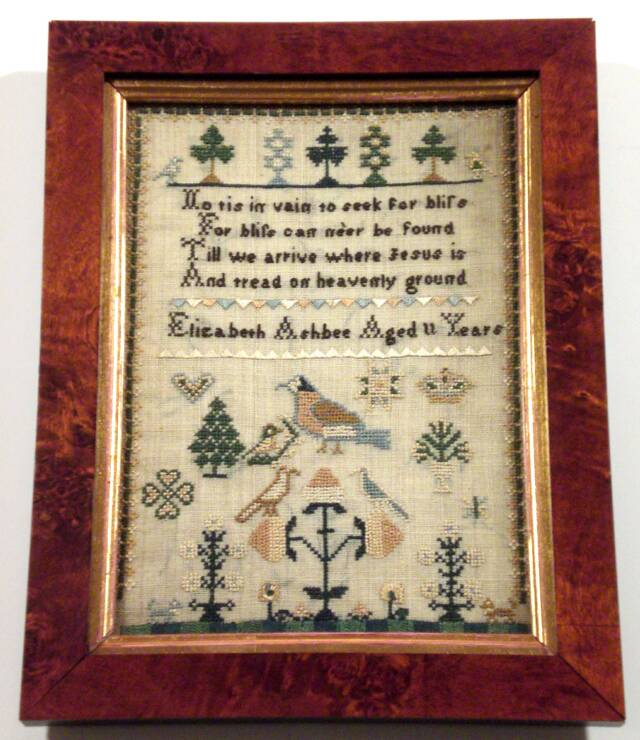 No tis in vain to seek for bliſs
For bliſs can néer be found
Till we arrive where Jesus is
And tread on heavenly ground
Elizabeth Ashbee Aged 11 Years